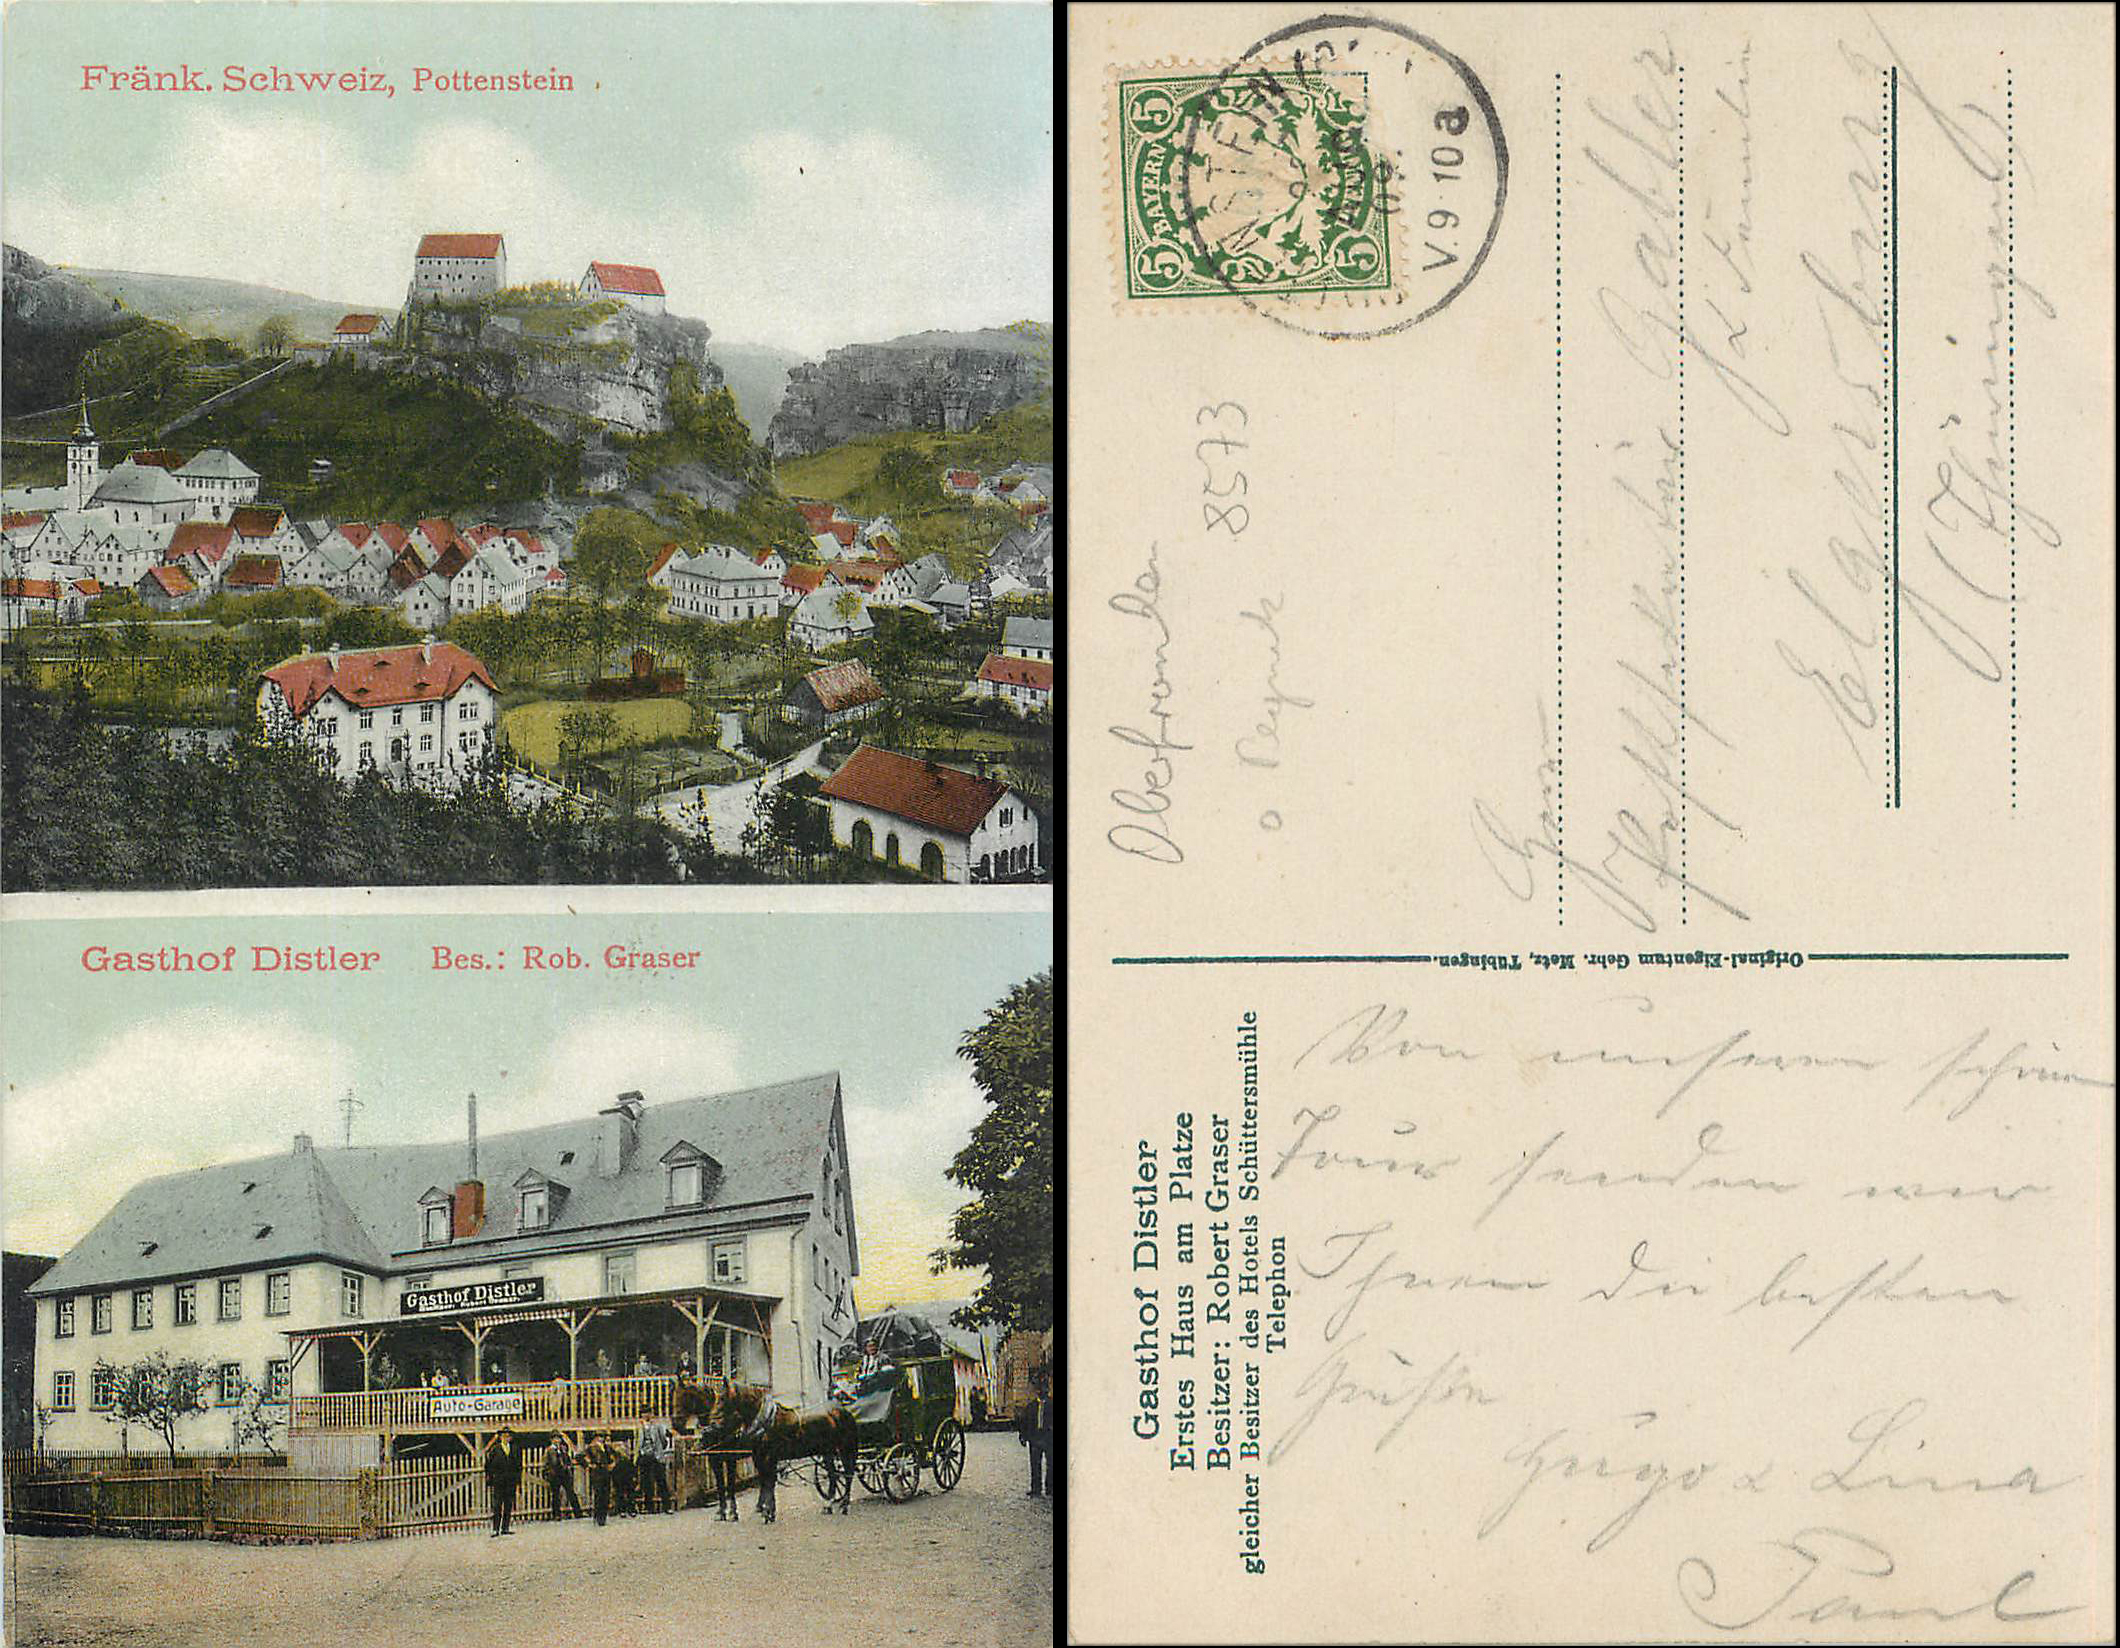 Fränk. Schweiz, Pottenstein
Gasthof Distler Bes.: Rob. Graser
Gasthof Distler
Auto-Garage
BAYERN
5 5 5
V. 9-10 a
09.
8573
Oberfranken
Elgersburg
Thüringen
Original-Eigentum Gebr. Metz, Tübingen.
Gasthof Distler
Erstes Haus am Platze
Besitzer: Robert Graser
gleicher Besitzer des Hotels Schüttersmühle
Telephon
Von unserer schönen
Tour senden wir
Ihnen die besten
Grüße
Hugo & Lina
Paul